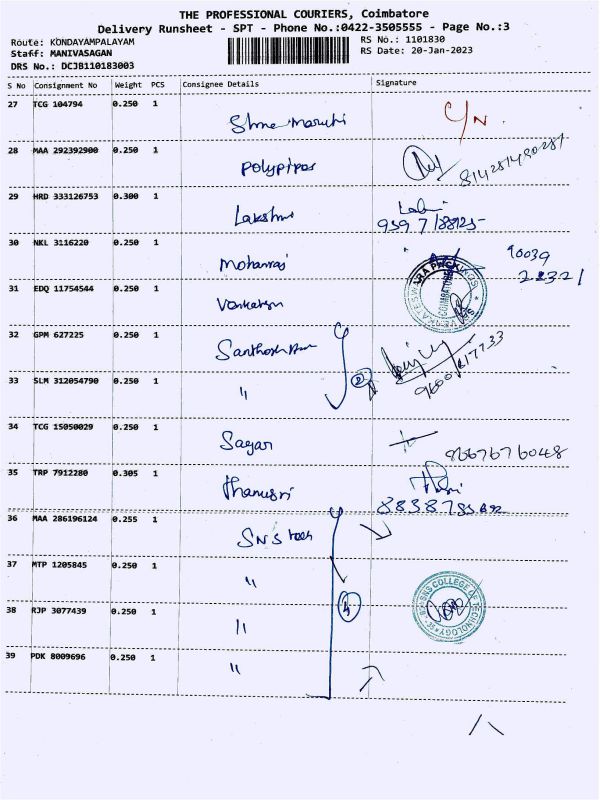 THE PROFESSIONAL COURIERS, Coimbatore
Delivery Runsheet - SPT - Phone No.:0422-3505555 - Page No.:3
Route: KONDAYAMPALAYAM
RS No.: 1101830
Staff: MANIVASAGAN
RS Date: 20-Jan-2023
DRS No.: DCJB110183003
S No Consignment No Weight PCS Consignee Details Signature
27 TCG 104794 0.250 1 Shree maruti
28 MAA 292392900 0.250 1 Polypipes
29 HRD 333126753 0.300 1 Lakshmi
30 NKL 3116220 0.250 1 Mohanraj 90039
31 EDQ 11754544 0.250 1 Venkatesn
32 GPM 627225 0.250 1
33 SLM 312054790 0.250 1 "
34 TCG 15050029 0.250 1 Sagar
35 TRP 7912280 0.305 1 Thanusri
36 MAA 286196124 0.255 1 SNS
37 MTP 1205845 0.250 1 "
38 RJP 3077439 0.250 1 "
39 PDK 8009696 0.250 1 "
SNS COLLEGE OF TECHNOLOGY